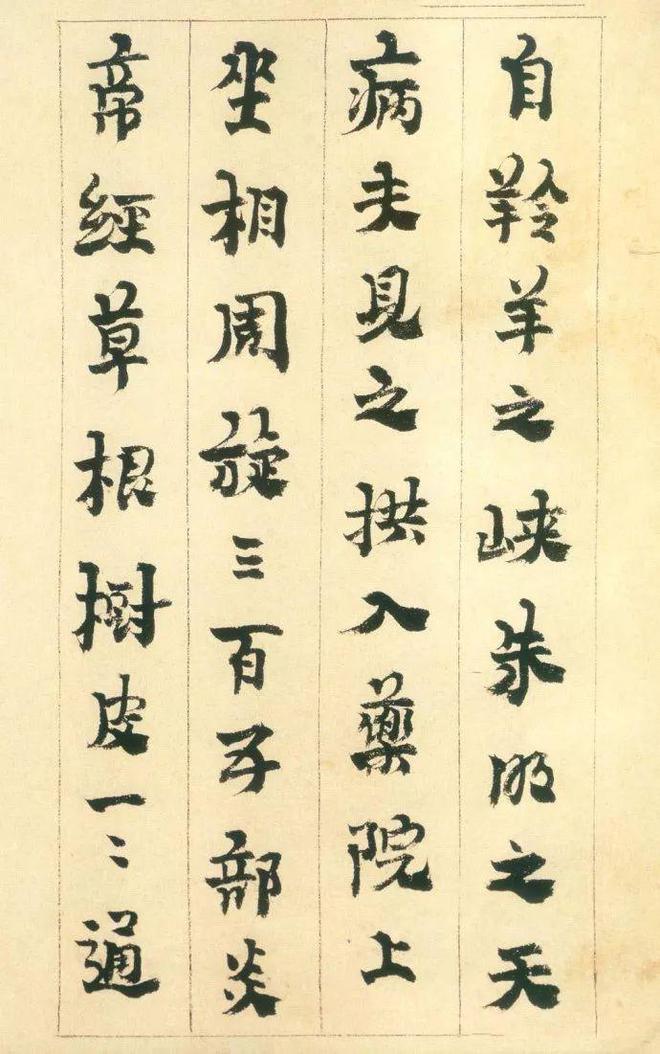 自羚羊之峡朱明之天
病夫見之拱入藥院上
坐相周旋三百子部炎
帝經草根樹皮一二通